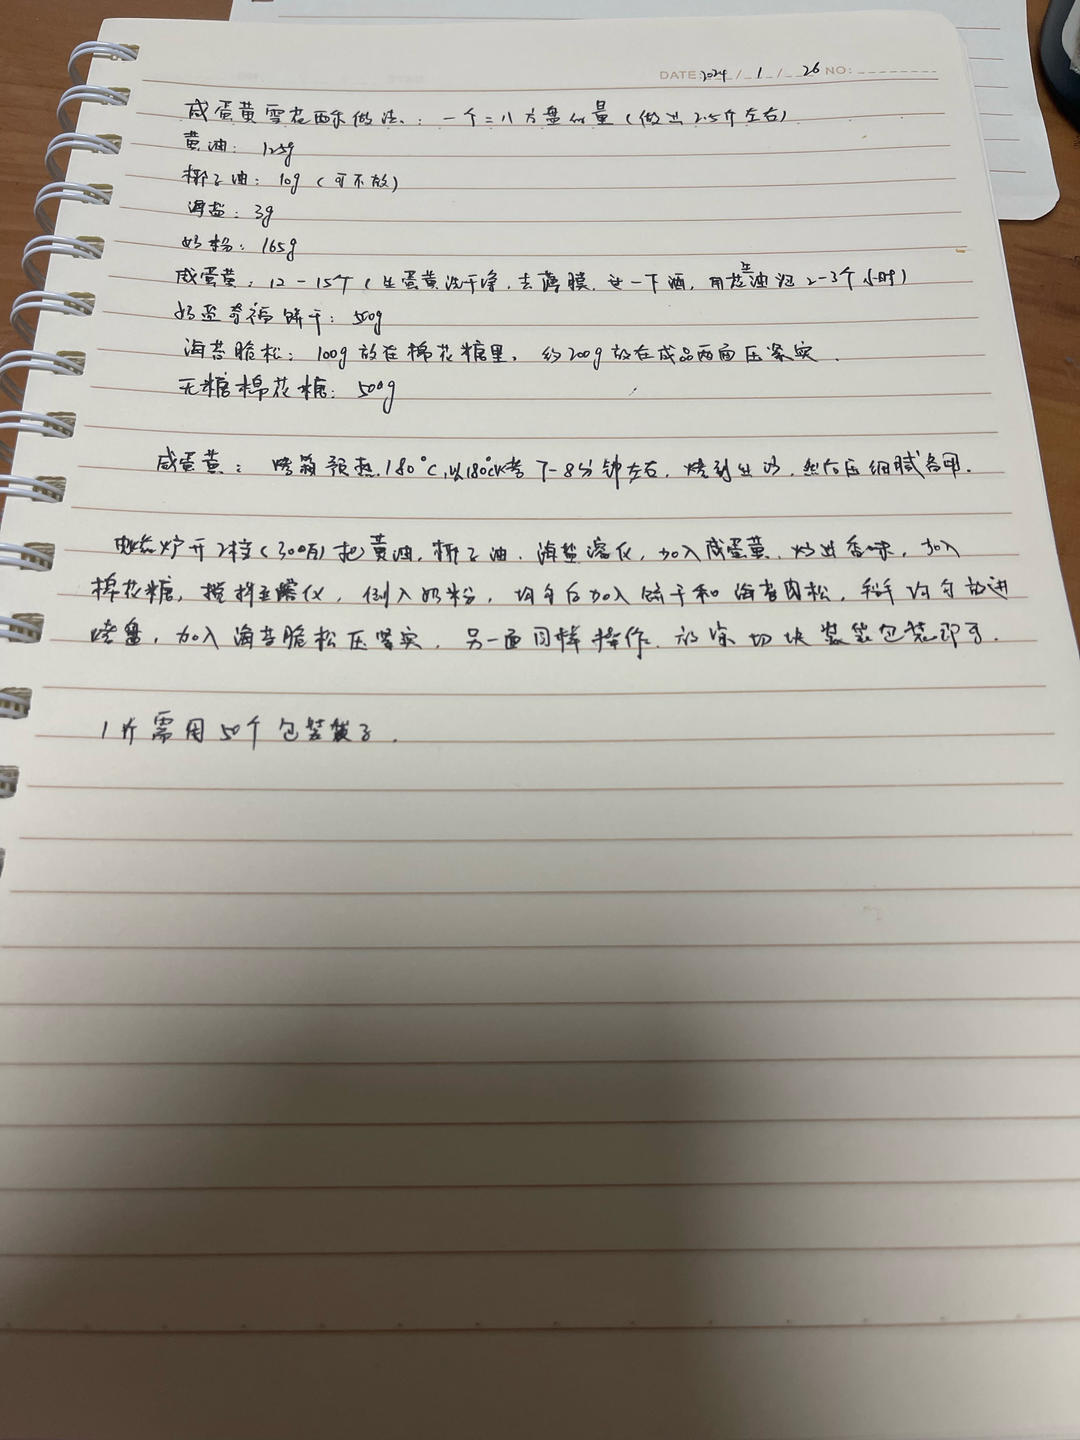 DATE: 2024 / 1 / 26 NO:
咸蛋黄雪花酥做法: 一个二八方盘的量(做出2.5斤左右)
黄油: 125g
椰子油: 10g (可不放)
海盐: 3g
奶粉: 165g
咸蛋黄: 12-15个(生蛋黄洗干净, 去薄膜, 一下酒, 用花生油泡2-3个小时)
奶盐奇福饼干: 500g
海苔脆松: 100g放在棉花糖里, 约200g放在成品两面压紧实.
无糖棉花糖: 500g
咸蛋黄: 烤箱预热180°C, 以180°C烤7-8分钟左右, 烤到出油, 然后压细腻备用.
电磁炉开2档(300瓦)把黄油, 椰子油, 海盐溶化, 加入咸蛋黄, 炒出香味, 加入
棉花糖, 搅拌至溶化, 倒入奶粉, 均匀后加入饼干和海苔肉松, 拌均匀放进
烤盘, 加入海苔脆松压紧实, 另一面同样操作, 放凉切块装袋包装即可.
1斤需用50个包装袋子.